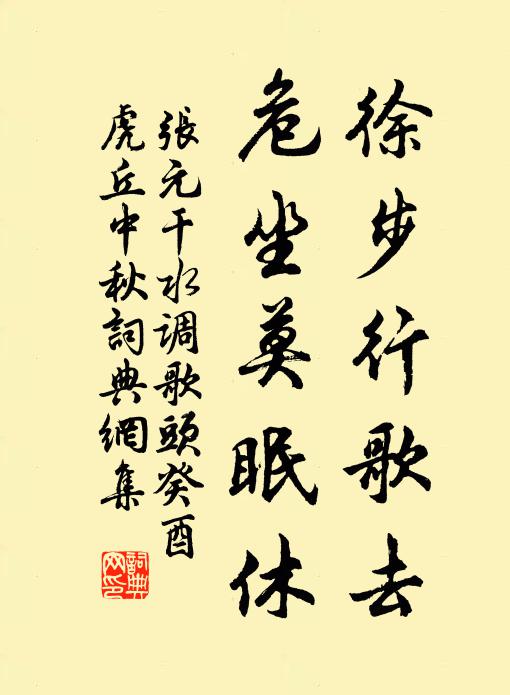 徐步行歌去
危坐莫眠休
張元干水调歌頭癸酉
虎丘中秋詞典網集
詞典网印